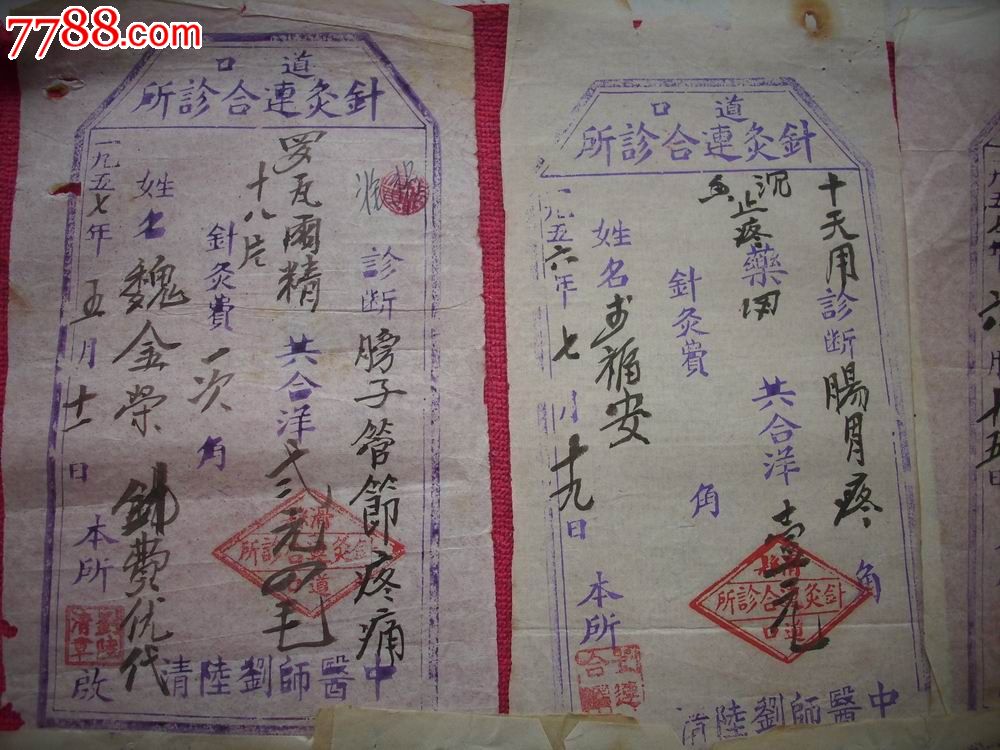 7788.com
道口
針灸連合診所
診断膀子管節疼痛
共合洋弍元四毛
十八片
針灸費一次角
姓名魏金榮
針費优代
一九五七年五月十一日
本所啟
中醫師劉陸清
滑
針灸連合診所
道口
道口
針灸連合診所
十天用
診断腸胃疼
沉
止疼藥四
共合洋壹元
角
針灸費角
姓名
福安
一九五六年七月十九日
本所
中醫師劉陸清
針灸連合診所
道口